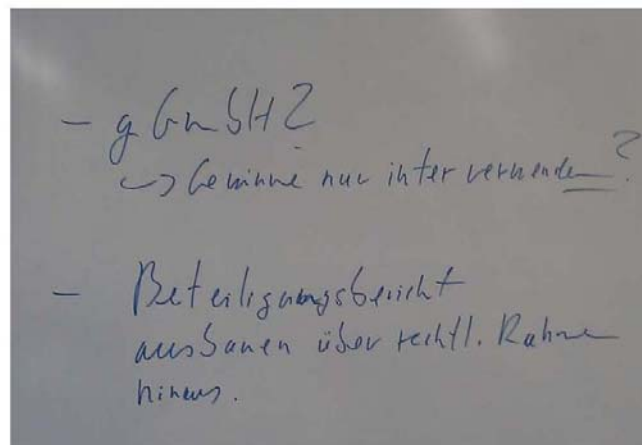 - gGmbH?
↳ Gewinne nur inter verwenden?
- Beteiligungsbericht
ausbauen über rechtl. Rahmen
hinaus.